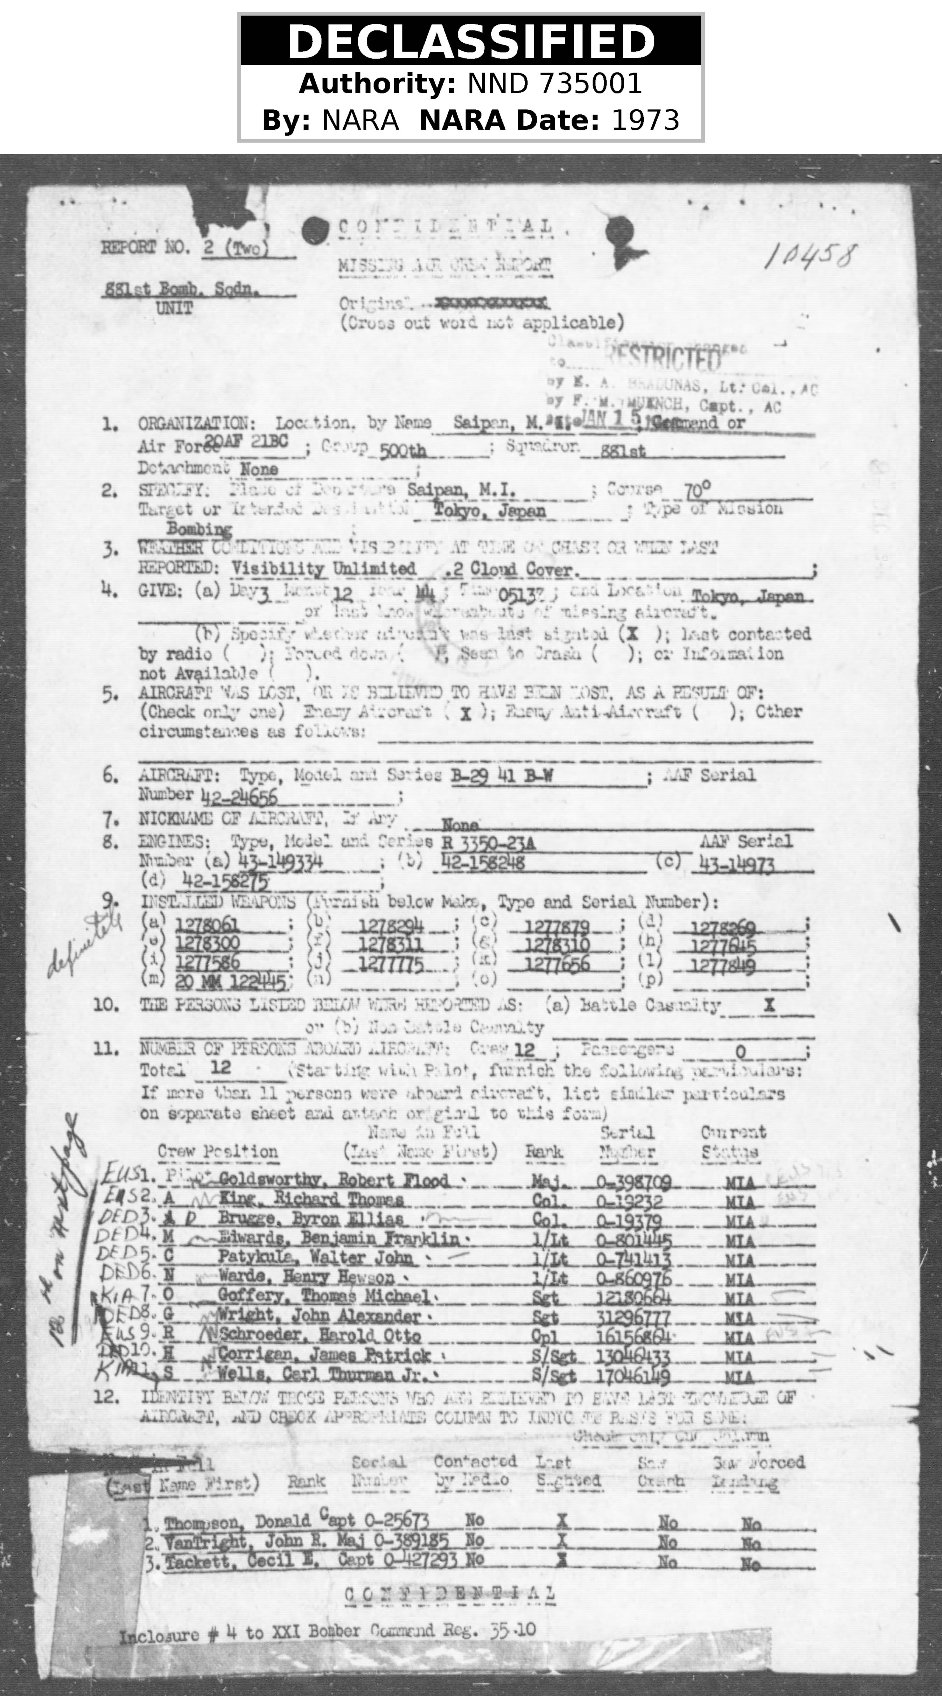 DECLASSIFIED
Authority: NND 735001
By: NARA NARA Date: 1973
CONFIDENTIAL
REPORT NO. 2 (Two)
10458
MISSING AIR CREW REPORT
881st Bomb. Sqdn.
UNIT
Original
(Cross out word not applicable)
Classification changed
to RESTRICTED
by E. A. BRADUNAS, Lt. Col., AC
by F. M. MUENCH, Capt., AC
Date JAN 15
1. ORGANIZATION: Location, by Name Saipan, M. I. ; Command or
Air Force 20AF 21BC ; Group 500th ; Squadron 881st
Detachment None ;
2. SPECIFY: Place of Departure Saipan, M.I. ; Course 70°
Target or Intended Destination Tokyo, Japan ; Type of Mission
Bombing ;
3. WEATHER CONDITIONS AND VISIBILITY AT TIME OF CRASH OR WHEN LAST
REPORTED: Visibility Unlimited .2 Cloud Cover. ;
4. GIVE: (a) Day 3 Month 12 Year 44 ; Time 0513Z ; and Location Tokyo, Japan
of last know whereabouts of missing aircraft.
(b) Specify whether aircraft was last sighted (X ); last contacted
by radio ( ); Forced down ( ); Seen to Crash ( ); or Information
not Available ( ).
5. AIRCRAFT WAS LOST, OR IS BELIEVED TO HAVE BEEN LOST, AS A RESULT OF:
(Check only one) Enemy Aircraft ( X ); Enemy Anti-Aircraft ( ); Other
circumstances as follows:
6. AIRCRAFT: Type, Model and Series B-29 41 B-W ; AAF Serial
Number 42-24656 ;
7. NICKNAME OF AIRCRAFT, If Any None
8. ENGINES: Type, Model and Series R 3350-23A AAF Serial
Number (a) 43-149334 ; (b) 42-158248 (c) 43-14973
(d) 42-158275 ;
9. INSTALLED WEAPONS (Furnish below Make, Type and Serial Number):
definitely
(a) 1278061 ; (b) 1278294 ; (c) 1277879 ; (d) 1278269 ;
(e) 1278300 ; (f) 1278311 ; (g) 1278310 ; (h) 1277645 ;
(i) 1277586 ; (j) 1277775 ; (k) 1277656 ; (l) 1277849 ;
(m) 20 MM 122445 ; (n) ; (o) ; (p) ;
10. THE PERSONS LISTED BELOW WERE REPORTED AS: (a) Battle Casualty X
or (b) Non Battle Casualty
11. NUMBER OF PERSONS ABOARD AIRCRAFT: Crew 12 ; Passengers 0 ;
Total 12 (Starting with Pilot, furnish the following particulars:
If more than 11 persons were aboard aircraft, list similar particulars
on separate sheet and attach original to this form)
Name in Full Serial Current
Crew Position (Last Name First) Rank Number Status
12th on next page
EUS 1. P Goldsworthy, Robert Flood Maj. O-398709 MIA
EUS 2. A King, Richard Thomas Col. O-19232 MIA
DED 3. A P Brugge, Byron Ellias Col. O-19379 MIA
DED 4. M Edwards, Benjamin Franklin 1/Lt O-801445 MIA
DED 5. C Patykula, Walter John 1/Lt O-741413 MIA
DED 6. N Warde, Henry Hewson 1/Lt O-860976 MIA
KIA 7. O Goffery, Thomas Michael Sgt 12180664 MIA
DED 8. G Wright, John Alexander Sgt 31296777 MIA
EUS 9. R Schroeder, Harold Otto Cpl 16156864 MIA
DED 10. H Corrigan, James Patrick S/Sgt 13046433 MIA
KIA 11. S Wells, Carl Thurman Jr. S/Sgt 17046149 MIA
12. IDENTIFY BELOW THOSE PERSONS WHO ARE BELIEVED TO HAVE LAST KNOWLEDGE OF
AIRCRAFT, AND CHECK APPROPRIATE COLUMN TO INDICATE BASIS FOR SAME:
Check only one Column
Name in Full Serial Contacted Last Saw Saw Forced
(Last Name First) Rank Number by Radio Sighted Crash Landing
1. Thompson, Donald Capt O-25673 No X No No
2. VanTright, John R. Maj O-389185 No X No No
3. Tackett, Cecil E. Capt O-427293 No X No No
CONFIDENTIAL
Inclosure # 4 to XXI Bomber Command Reg. 35-10